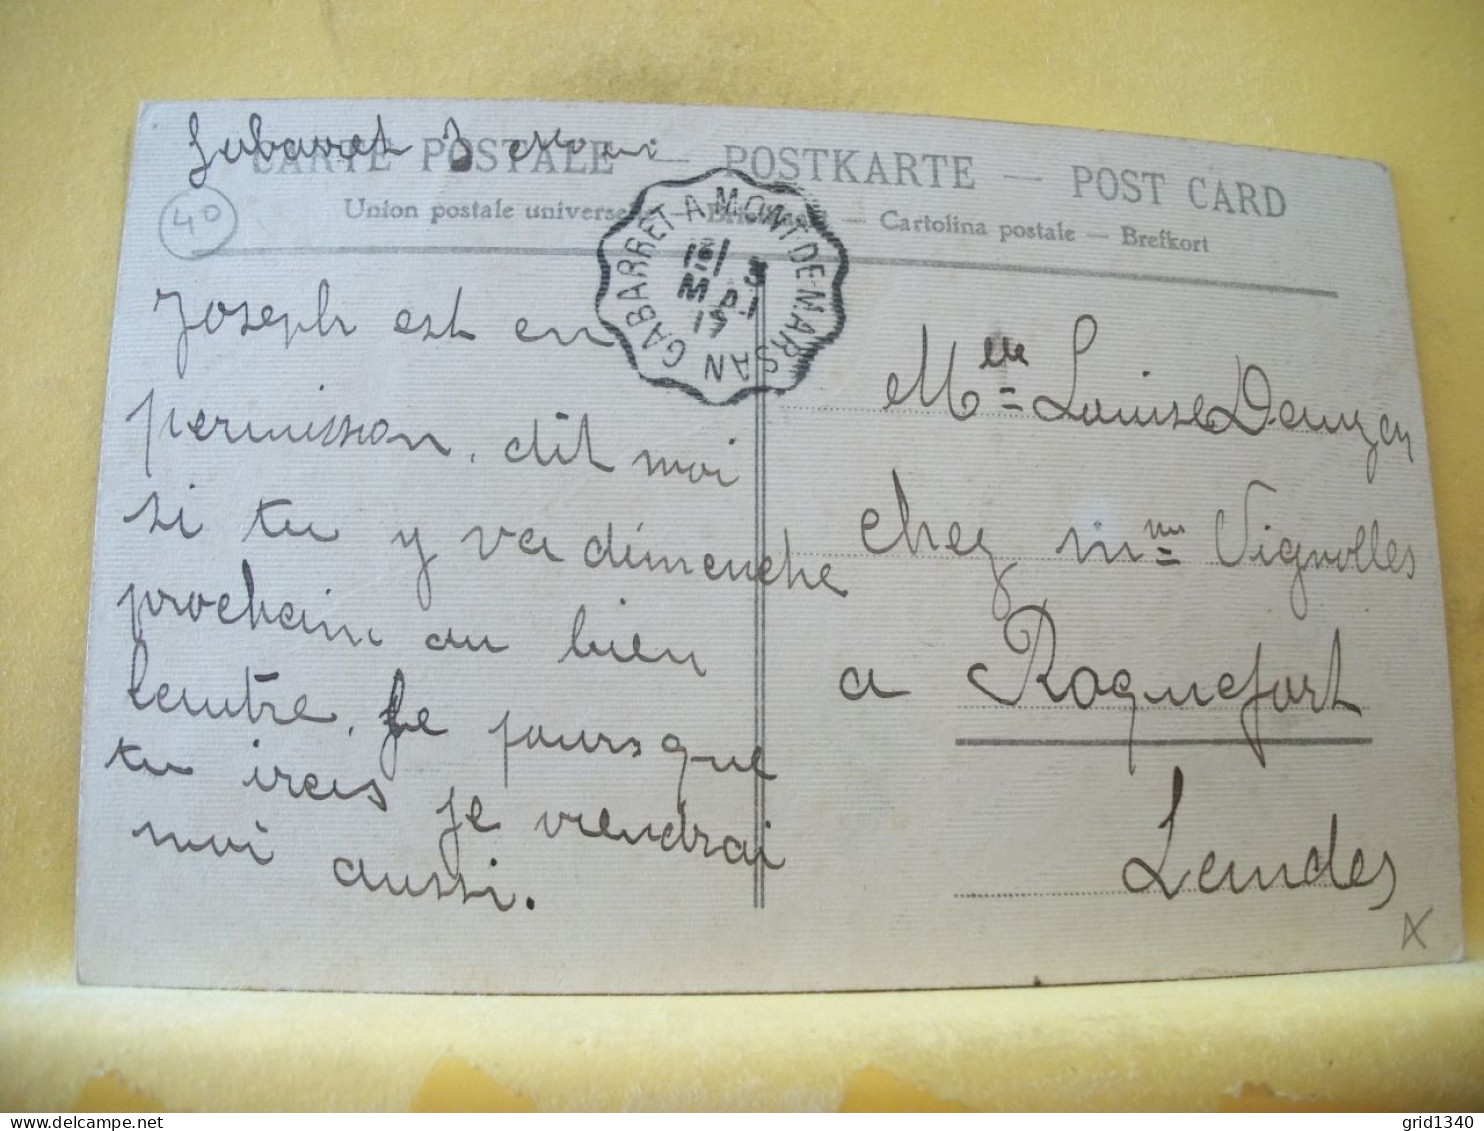 Gabarret 3 mai
CARTE POSTALE — POSTKARTE — POST CARD
40
Union postale universelle — — Cartolina postale — Brefkort
GABARRET A MONT DE-MARSAN
Joseph est en
permission, dit moi
si tu y va dimenche
prochain au bien
lautre, Le jours que
tu irais je viendrai
moi aussi.
Mlle Louise Dauzan
chez mme Vignolles
a Roquefort
Landes
grid1340